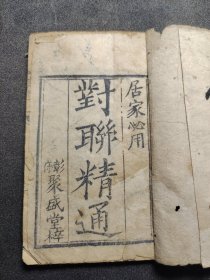 居家必用
對聯精通
彭聚盛堂梓